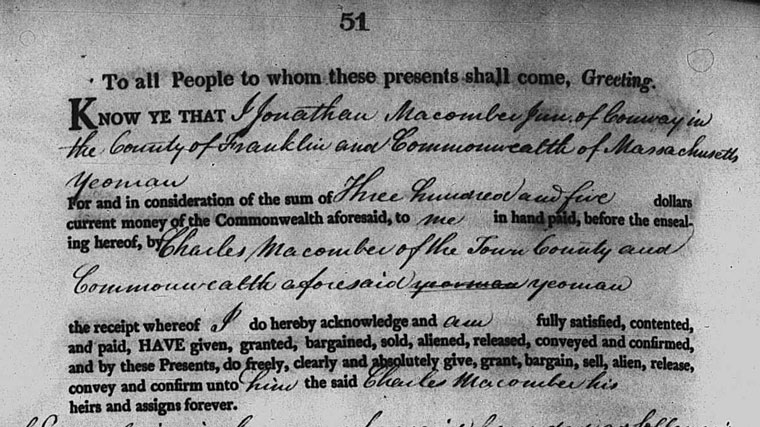 51
To all People to whom these presents shall come, Greeting.
KNOW YE THAT I Jonathan Macomber Jun. of Conway in
the County of Franklin and Commonwealth of Massachusetts
Yeoman
For and in consideration of the sum of Three hundred and five dollars
current money of the Commonwealth aforesaid, to me in hand paid, before the enseal-
ing hereof, by Charles Macomber of the Town County and
Commonwealth aforesaid yeoman yeoman
the receipt whereof I do hereby acknowledge and am fully satisfied, contented,
and paid, HAVE given, granted, bargained, sold, aliened, released, conveyed and confirmed,
and by these Presents, do freely, clearly and absolutely give, grant, bargain, sell, alien, release,
convey and confirm unto him the said Charles Macomber his
heirs and assigns forever.